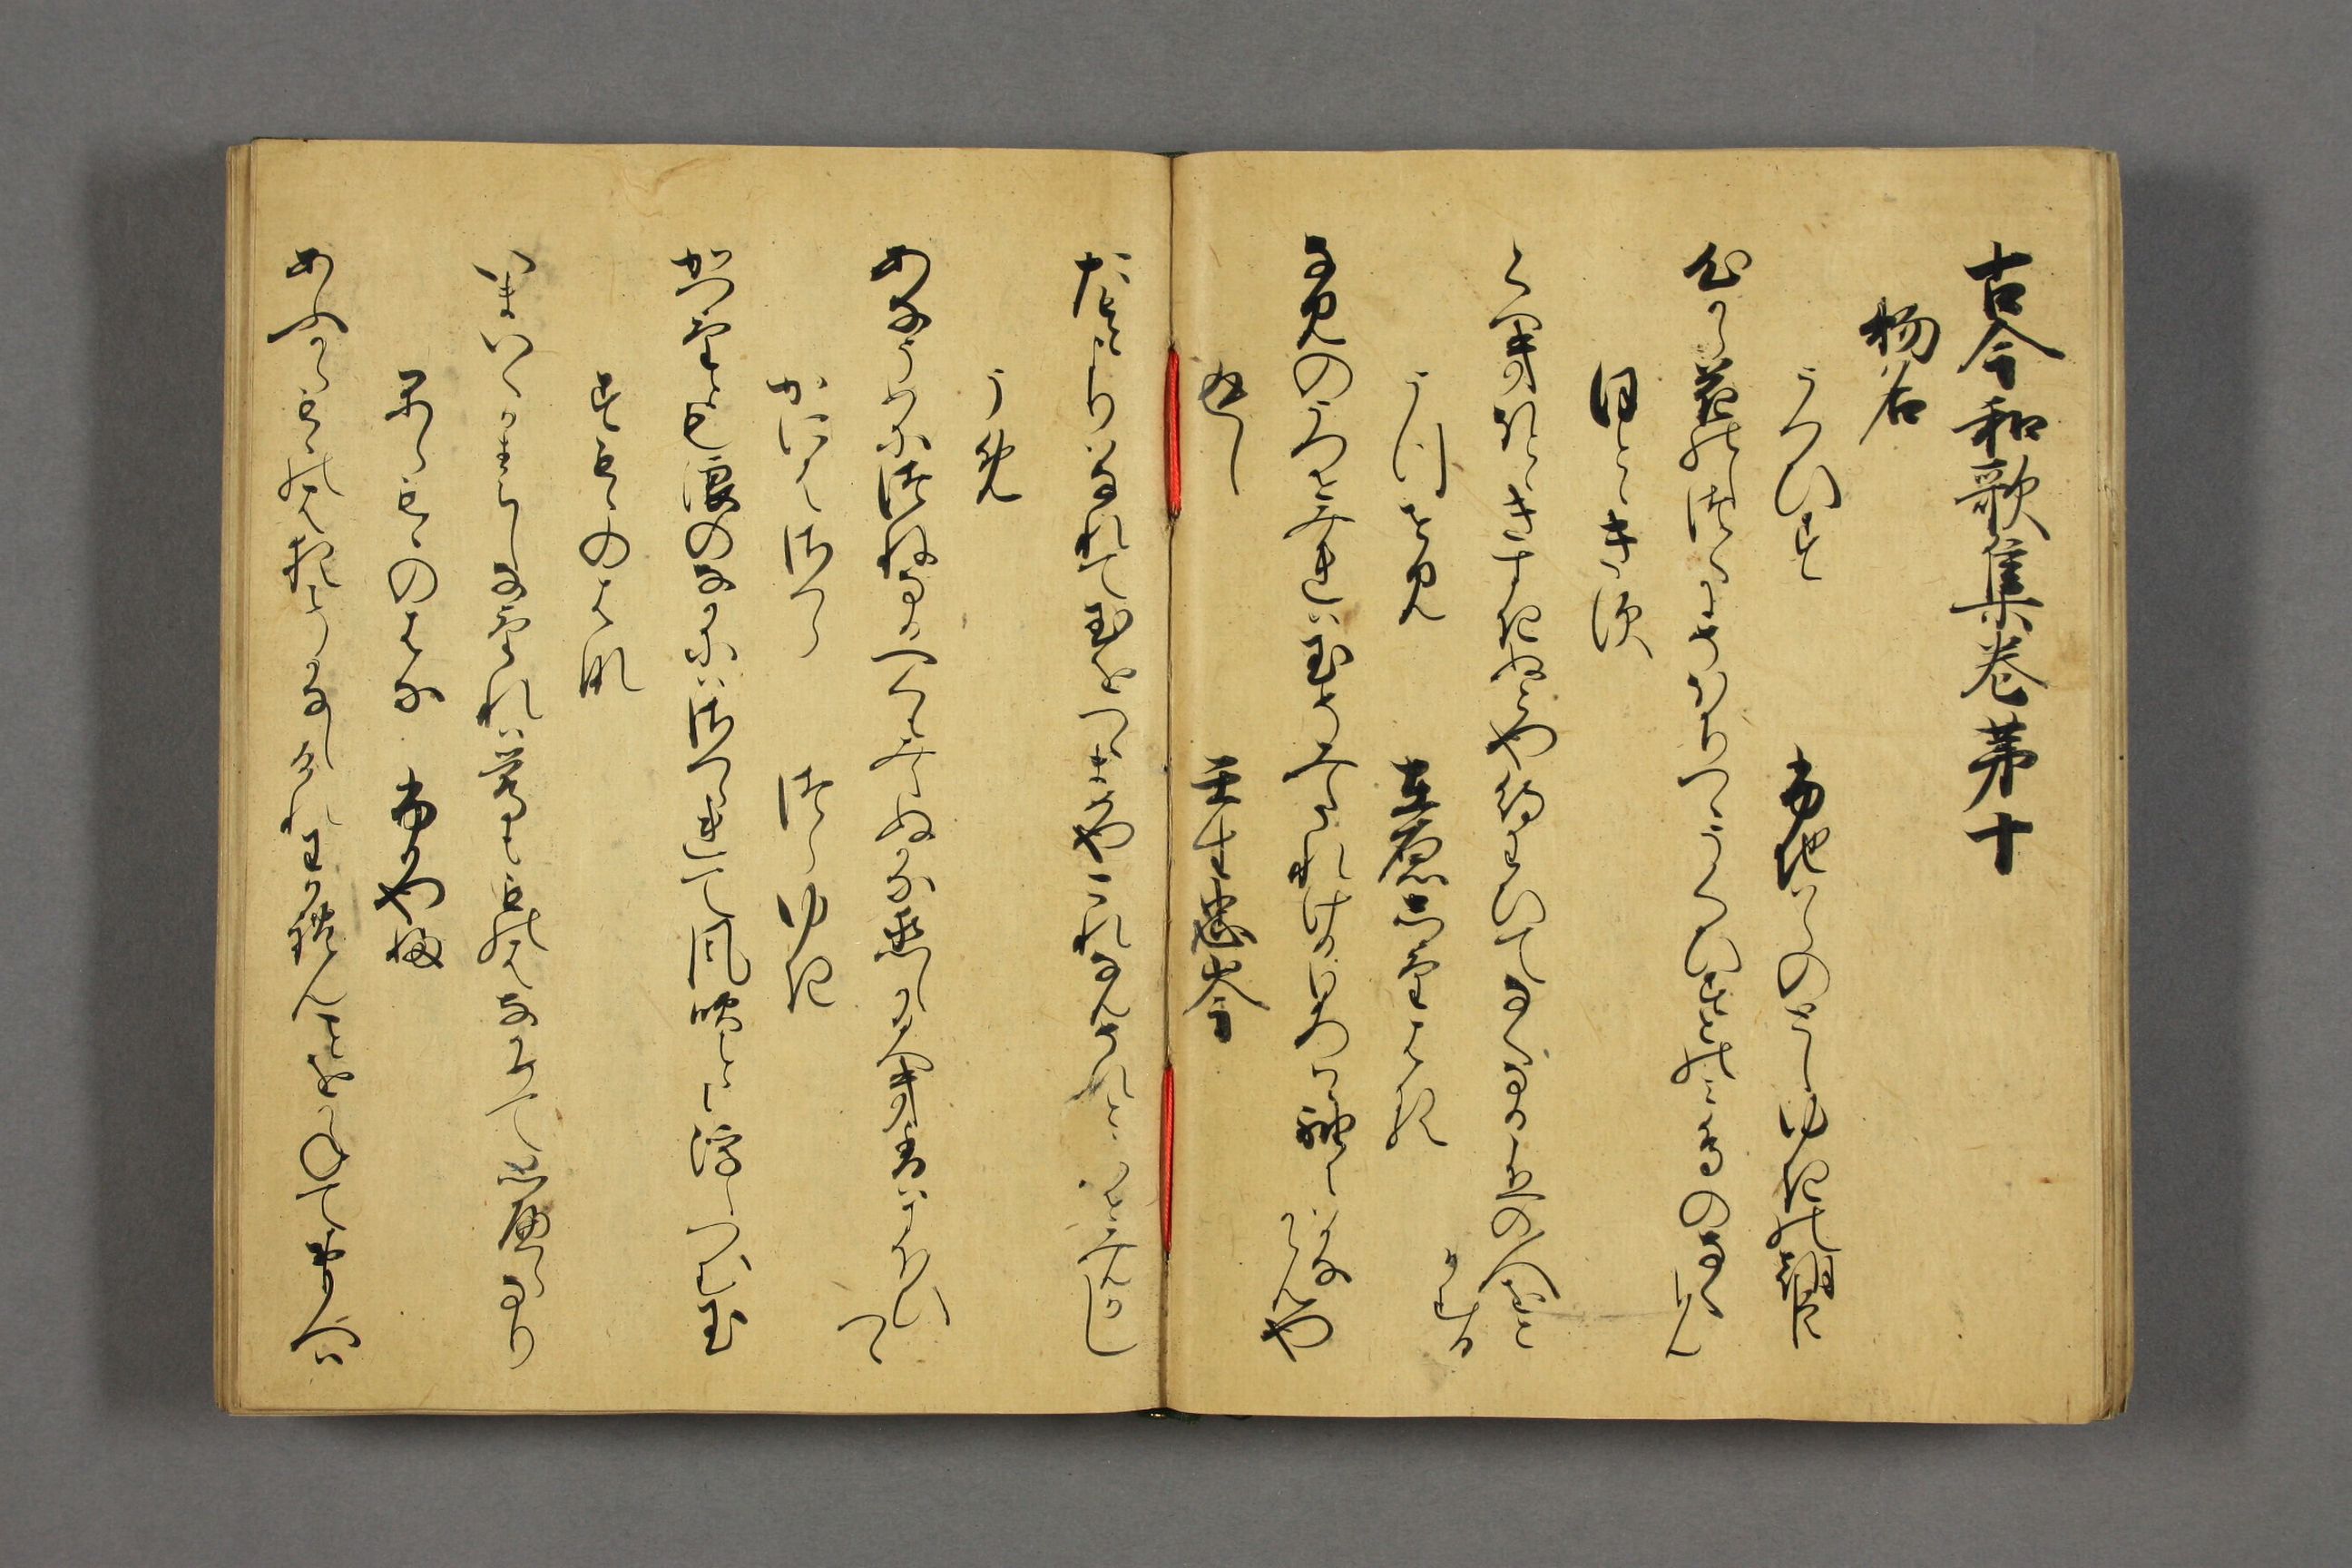 古今和歌集巻第十
物名
うくひす　藤原としゆきの朝臣
心から花のしつくにそほちつゝうくひすとのみ鳥のなくらん
ほとゝきす
くへきほとゝきすきぬれや待わひてなくなるこゑの人をとよむる
うつせみ　在原しけはる
なみのうつせみれは玉そみたれけるひろはゝ袖にはかなからんや
返し　壬生忠岑
たもとよりはなれて玉をつゝまめやこれなんそれとうつせみんかし
うめ
あなうめにつねなるへくもみえぬかな恋しかるへき香はにほひつゝ
かにはさくら　つらゆき
かつけとも浪のなかにはさくられて風吹ことに浮しつむ玉
すもゝのはな
いまいくか春しなけれは鶯もものはなかめて思へらなり
からもゝのはな　ふかやふ
あふからもものはなをこそかなしけれわかれんことをかねておもへは